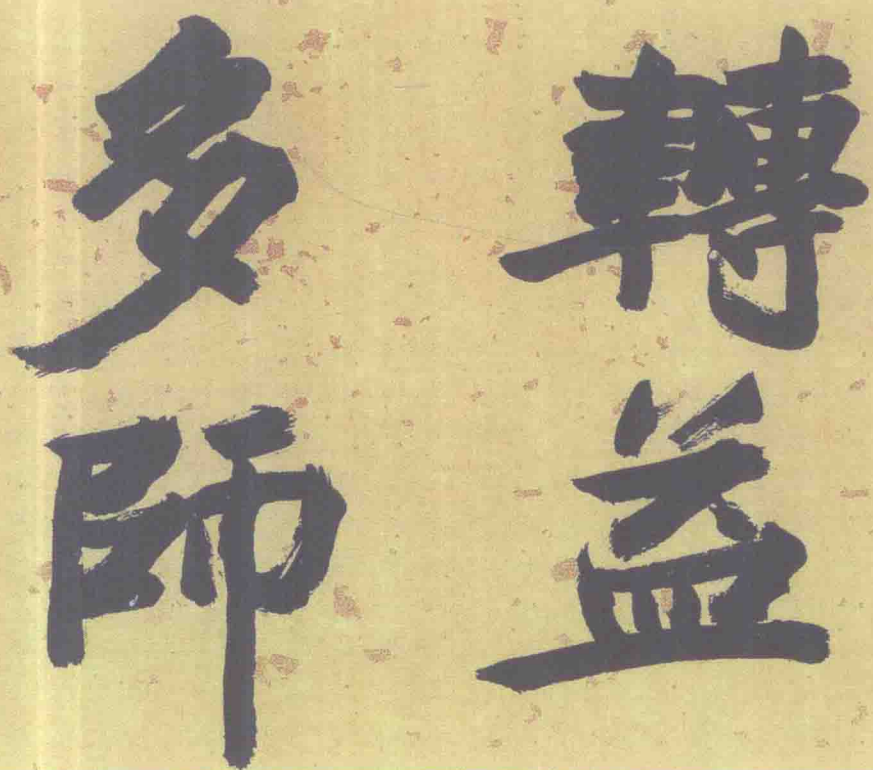 轉益
多師